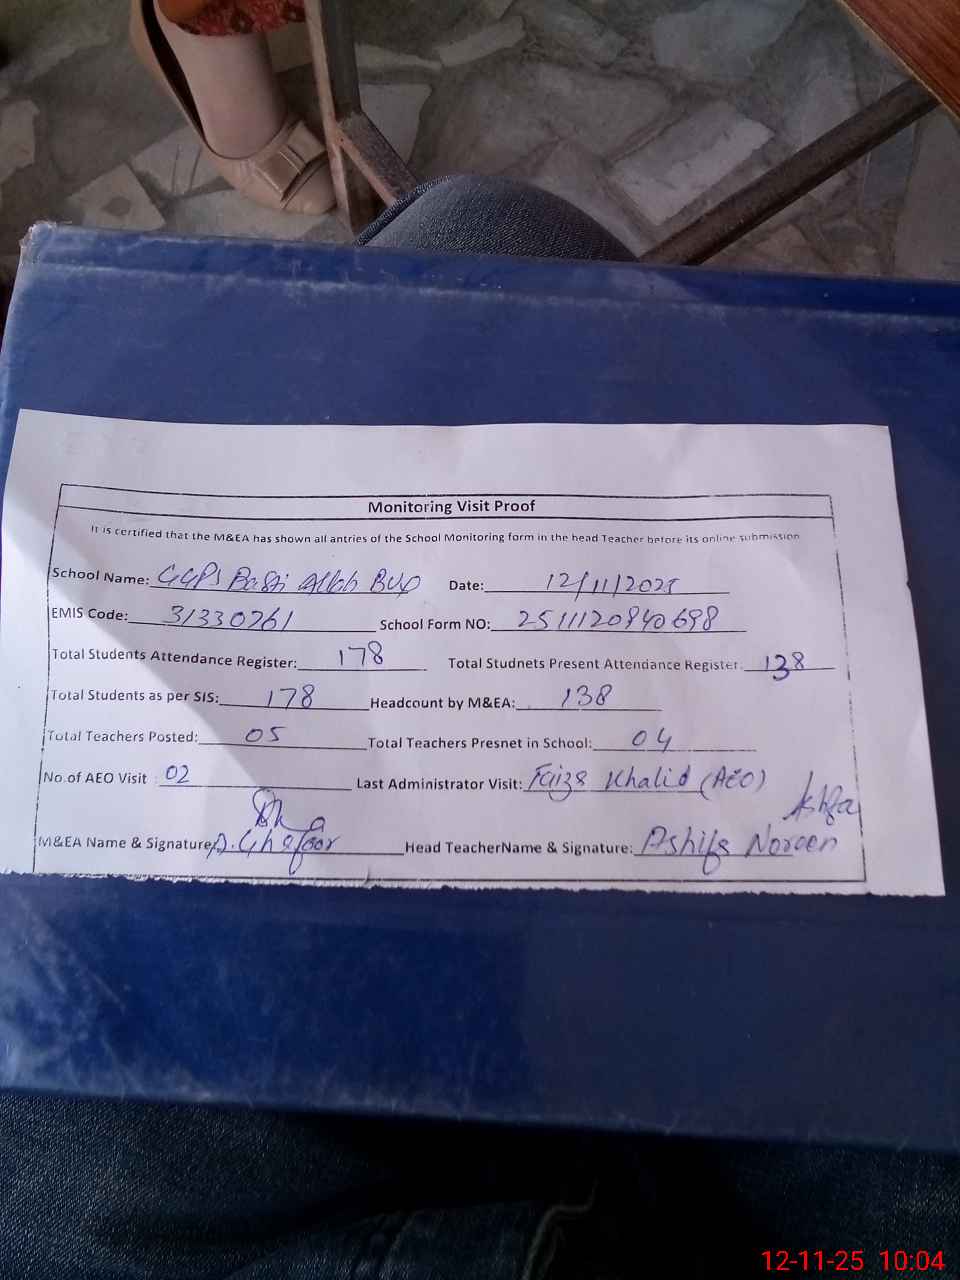 Monitoring Visit Proof
It is certified that the M&EA has shown all antries of the School Monitoring form in the head Teacher before its online submission
School Name: GGPS Basti Allah Bux Date: 12/11/2025
EMIS Code: 31330261 School Form NO: 2511120840698
Total Students Attendance Register: 178 Total Studnets Present Attendance Register: 138
Total Students as per SIS: 178 Headcount by M&EA: 138
Total Teachers Posted: 05 Total Teachers Presnet in School: 04
No.of AEO Visit : 02 Last Administrator Visit: Faiza Khalid (AEO)
M&EA Name & Signature: A. Ghafoor Head TeacherName & Signature: Ashifa Noreen
Ashfa
12-11-25 10:04